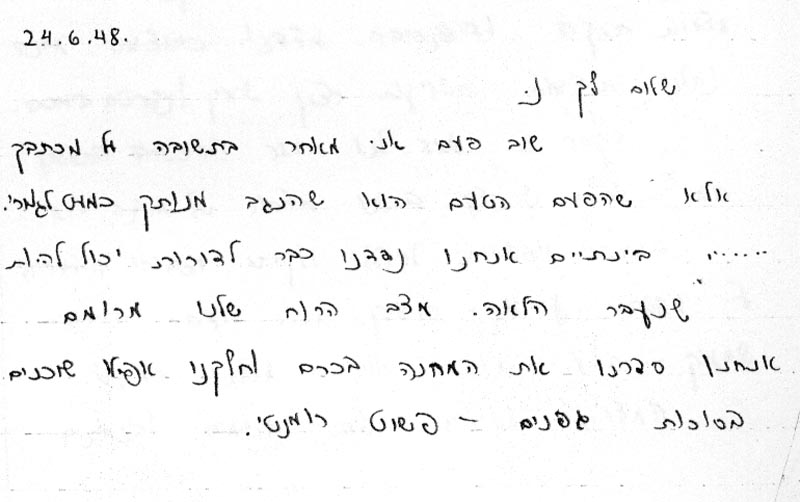 24.6.48.
שלום לך נ.
שוב פעם אני מאחר בתשובה על מכתבך
אלא שהפעם הטעם הוא שהנגב מנותק כמעט לגמרי.
...... בינתיים אנחנו נדדנו כבר לדורות יכול להיות
שנעבר הלאה. מצב הרוח שלנו מרומם
אנחנו סדרנו את המחנה בכרם וחלקנו אפילו שוכנים
בסוכות גפנים – פשוט רומנטי.